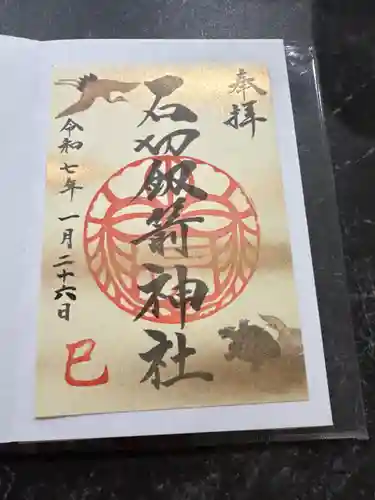 奉拝
石切劔箭神社
令和七年 一月二十六日
巳